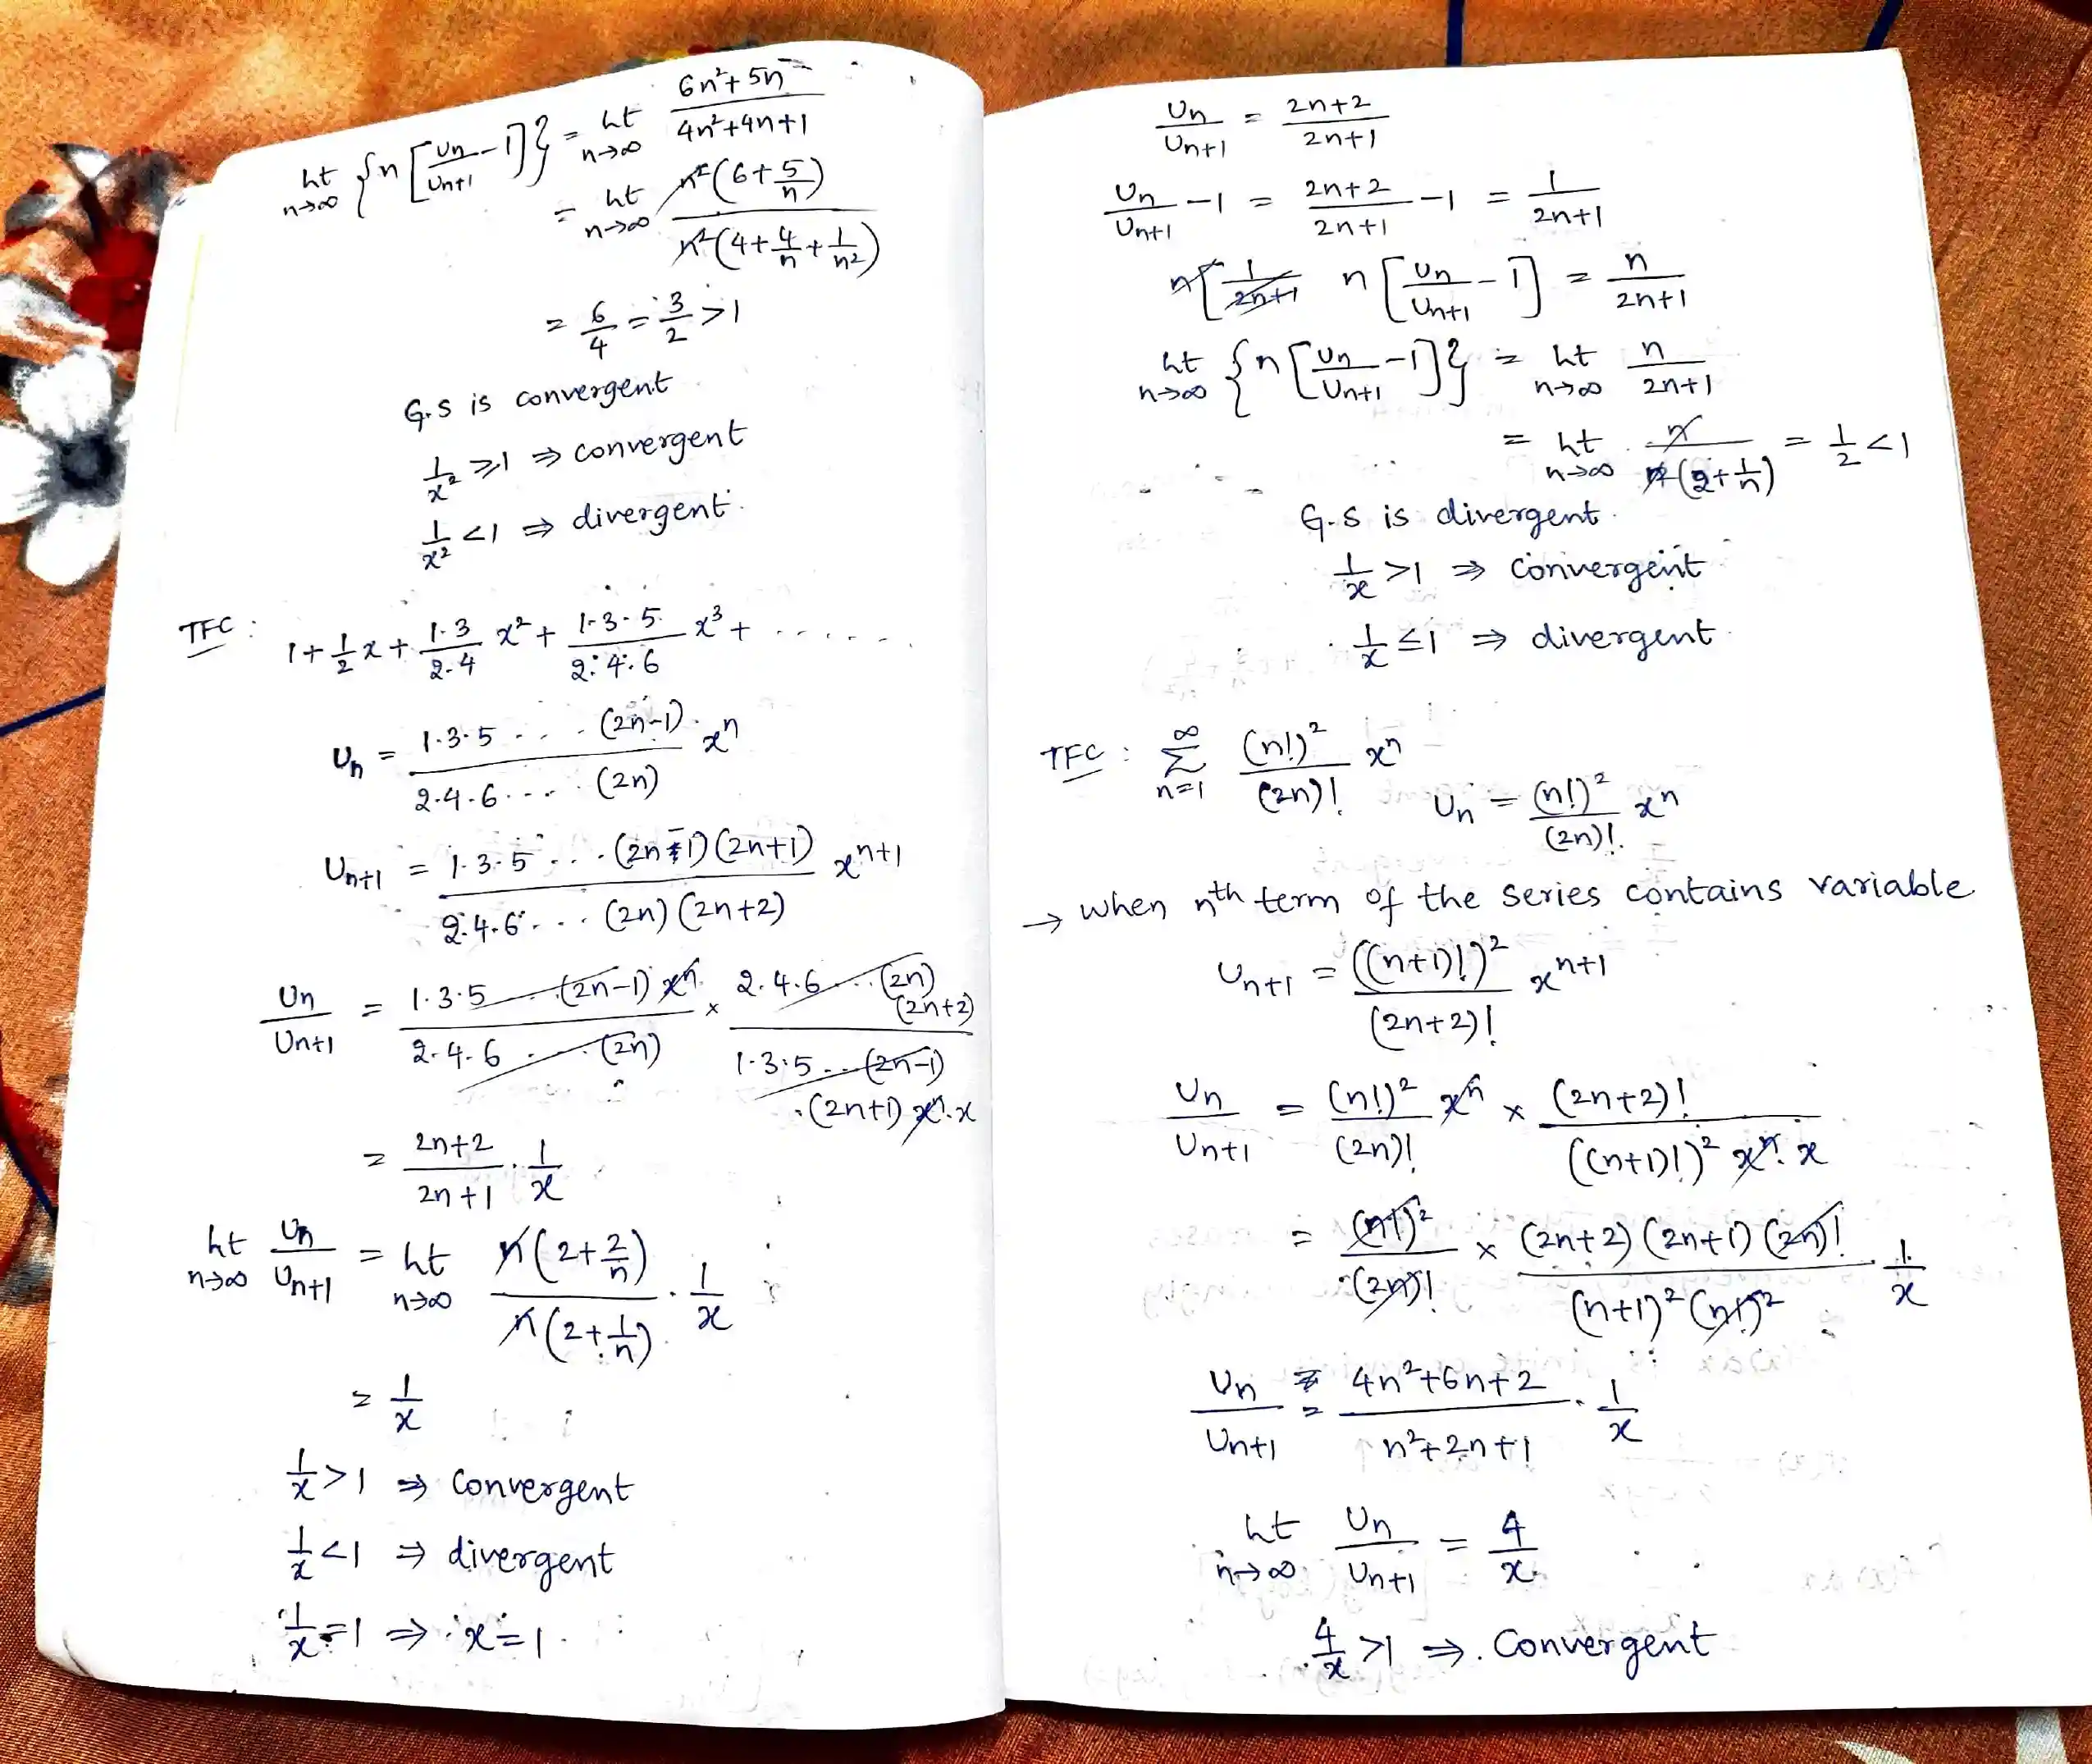 lt n→∞ {n[Un/Un+1 -1]} = lt n→∞ (6n²+5n)/(4n²+4n+1)
= lt n→∞ n²(6+5/n)/n²(4+4/n+1/n²)
= 6/4 = 3/2 >1
G.S is convergent
1/x² ≥1 ⇒ convergent
1/x² <1 ⇒ divergent.
TFC : 1+1/2 x + 1.3/2.4 x² + 1.3.5/2.4.6 x³ + ......
Un = 1.3.5 ... (2n-1)/2.4.6.... (2n) . xⁿ
Un+1 = 1.3.5 ... (2n-1)(2n+1)/2.4.6... (2n)(2n+2) xⁿ⁺¹
Un/Un+1 = 1.3.5 ... (2n-1) xⁿ/2.4.6 ... (2n) × 2.4.6 ... (2n)(2n+2)/1.3.5...(2n-1).(2n+1) xⁿ.x
= (2n+2)/(2n+1) . 1/x
lt n→∞ Un/Un+1 = lt n→∞ n(2+2/n)/n(2+1/n) . 1/x
= 1/x
1/x >1 ⇒ Convergent
1/x <1 ⇒ divergent
1/x =1 ⇒ x=1.
Un/Un+1 = (2n+2)/(2n+1)
Un/Un+1 -1 = (2n+2)/(2n+1) -1 = 1/(2n+1)
n[Un/Un+1 -1] = n/(2n+1)
lt n→∞ {n[Un/Un+1 -1]} = lt n→∞ n/(2n+1)
= lt n→∞ n/n(2+1/n) = 1/2 <1
G.S is divergent.
1/x >1 ⇒ convergent
1/x ≤1 ⇒ divergent
TFC : ∞ Σ n=1 (n!)²/(2n)! xⁿ
Un = (n!)²/(2n)! xⁿ
→ when nth term of the series contains variable
Un+1 = ((n+1)!)²/(2n+2)! xⁿ⁺¹
Un/Un+1 = (n!)²/(2n)! xⁿ × (2n+2)!/((n+1)!)² xⁿ.x
= (n!)²/(2n)! × (2n+2)(2n+1)(2n)!/(n+1)²(n!)² . 1/x
Un/Un+1 = (4n²+6n+2)/(n²+2n+1) . 1/x
lt n→∞ Un/Un+1 = 4/x
4/x >1 ⇒ Convergent